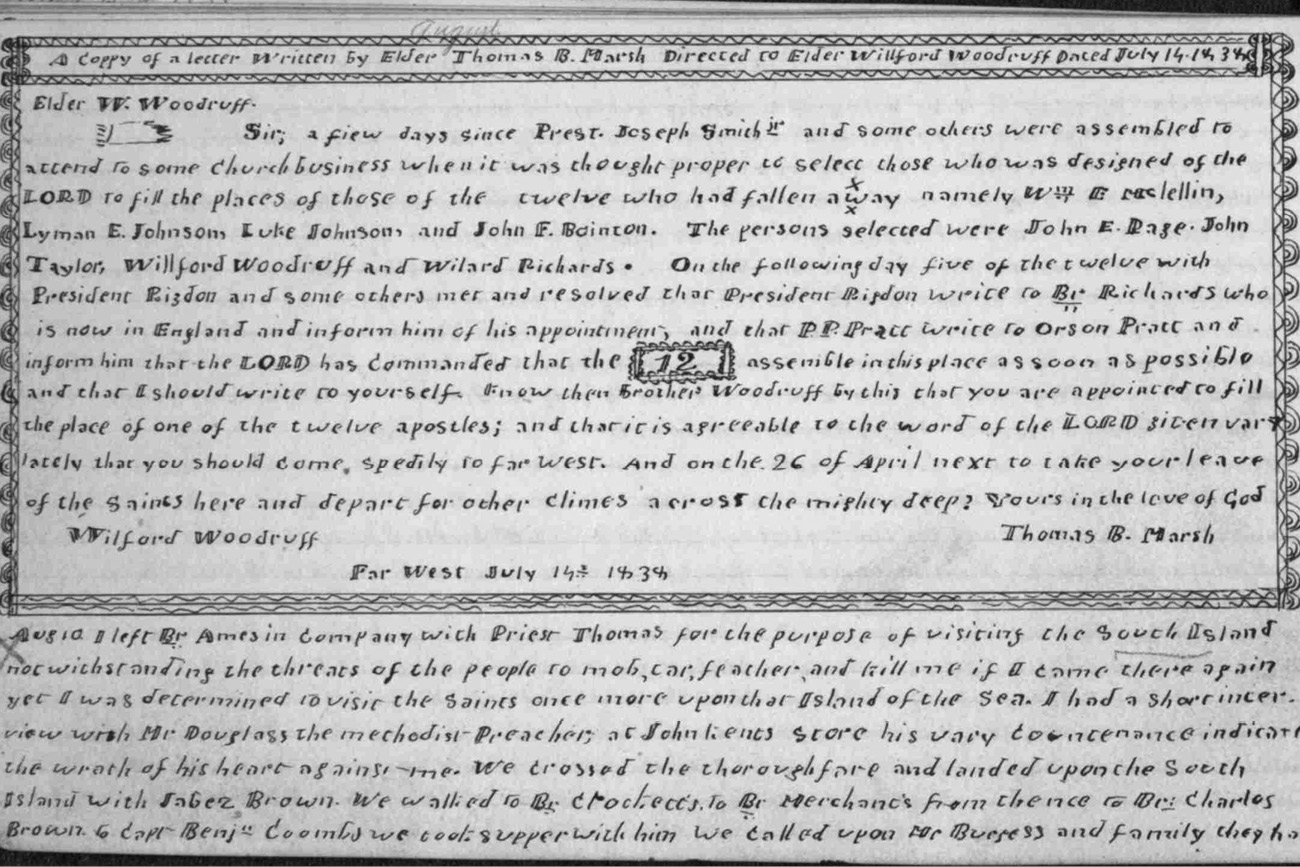 August
A Coppy of a letter Written by Elder Thomas B. Marsh Directed to Elder Willford Woodruff Dated July 14. 1838
Elder W. Woodruff.
Sir; a fiew days since Prest. Joseph Smith Jr and some others were assembled to
attend to some Church business when it was thought proper to select those who was designed of the
LORD to fill the places of those of the twelve who had fallen away namely Wm E Mclellin,
Lyman E. Johnson, Luke Johnson, and John F. Bointon. The persons selected were John E. Page. John
Taylor, Willford Woodruff and Wilard Richards. On the following day five of the twelve with
President Rigdon and some others met and resolved that President Rigdon write to Br Richards who
is now in England and inform him of his appointment, and that P.P. Pratt write to Orson Pratt and
inform him that the LORD has Commanded that the 12 assemble in this place as soon as possible
and that I should write to yourself. Know then Brother Woodruff by this that you are appointed to fill
the place of one of the twelve apostles; and that it is agreeable to the word of the LORD given vary
lately that you should come, spedily to far West. And on the 26 of April next to take your leave
of the Saints here and depart for other Climes across the mighty deep? Yours in the love of God
Wilford Woodruff Thomas B. Marsh
Far West July 14th 1838
I left Br Ames in Company with Priest Thomas for the purpose of visiting the South Island
notwithstanding the threats of the people to mob, tar, feather, and kill me if I came there again
yet I was determined to visit the Saints once more upon that Island of the Sea. I had a short inter-
view with Mr Douglass the methodist Preacher; at John Kents Store his vary Countenance indicat
the wrath of his heart against me. We crossed the thoroughfare and landed upon the South
Island with Jabez Brown. We walked to Br Crocketts, to Br Merchants from thence to Br: Charles
Brown & Capt Benjn Coombs we took supper with him We Called upon Mr Burgess and family they ha